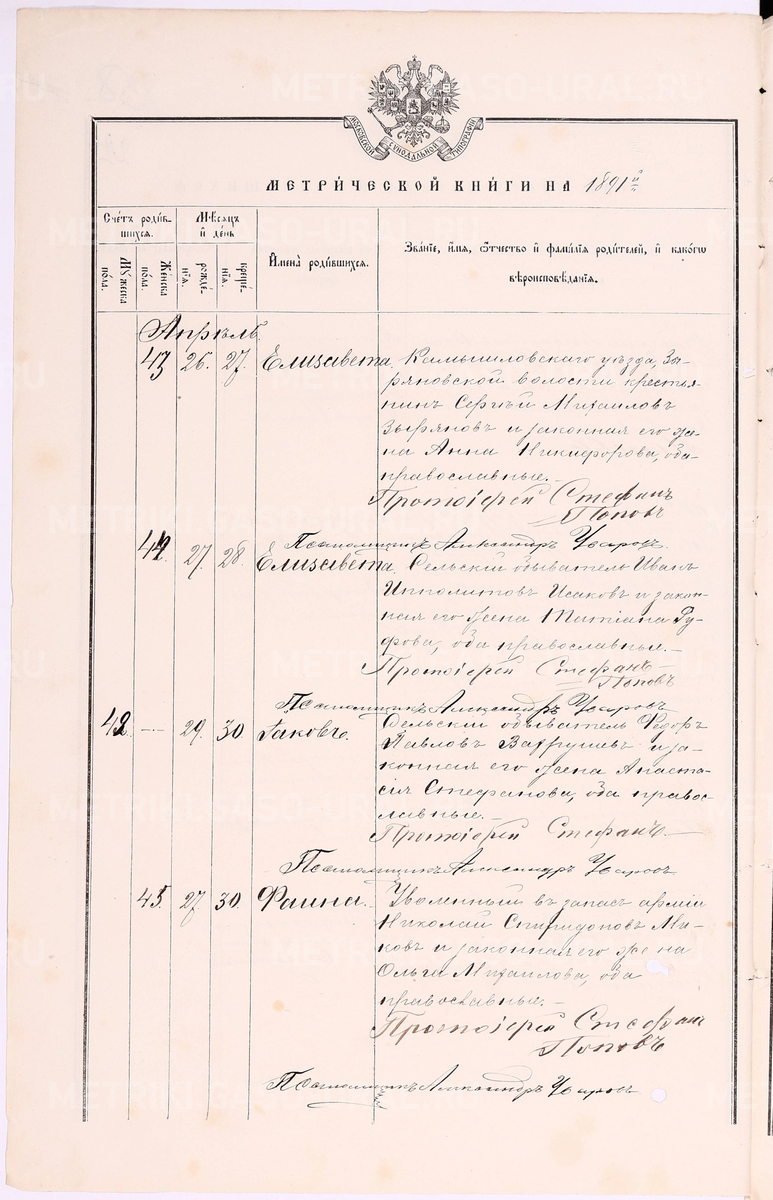 МОСКОВСКОЙ СУНОДАЛЬНОЙ ТИПОГРАФІИ
МЕТРИ́ЧЕСКОЙ КНИ́ГИ НА 1891й
Сче́тъ роди́в-
шихся.
Мѣсяцъ
и де́нь
Мꙋ́жеска
по́ла.
Же́нска
по́ла.
рожде́-
нїя.
креще́-
нїя.
Имена̀ роди́вшихся.
Зва́нїе, и́мя, ѻ҆́тчество и фами́лїя роди́телей, и како́гѡ
вѣроисповѣ́данїя.
Апрѣль.
43 26. 27. Елизавета. Камышловскаго уѣзда, Зы-
ряновской волости крестья-
нинъ Сергѣй Михаиловъ
Зыряновъ и законная его же-
на Анна Никифорова, оба
православные.
Протоіерей Стефанъ
Поповъ
Псаломщикъ Александръ Уваровъ.
44. 27. 28. Елизавета. Сельскій обыватель Иванъ
Ипполитовъ Исаковъ и закон-
ная его жена Татіана Ру-
фова, оба православные. —
Протоіерей Стефанъ
Поповъ
Псаломщикъ Александръ Уваровъ
42. — 29. 30. Іаковъ. Сельскій обыватель Ѳедоръ
Павловъ Вахрушевъ и за-
конная его жена Анаста-
сія Стефанова, оба право-
славные. —
Протоіерей Стефанъ. —
Псаломщикъ Александръ Уваровъ
45. 27 30. Фаина. Уволенный въ запасъ арміи
Николай Спиридоновъ Ми-
ковъ и законная его же на
Ольга Михаилова, оба
православные. —
Протоіерей Стефанъ
Поповъ
Псаломщикъ Александръ Уваровъ